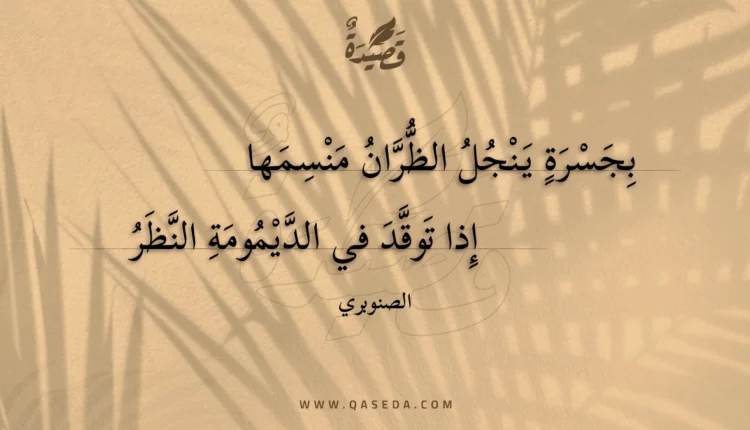 قَصِيدَةٌ
بِجَسْرَةٍ يَنْجُلُ الظُّرَّانُ مَنْسِمَها
إِذا تَوقَّدَ في الدَّيْمُومَةِ النَّظَرُ
الصنوبري
WWW.QASEDA.COM